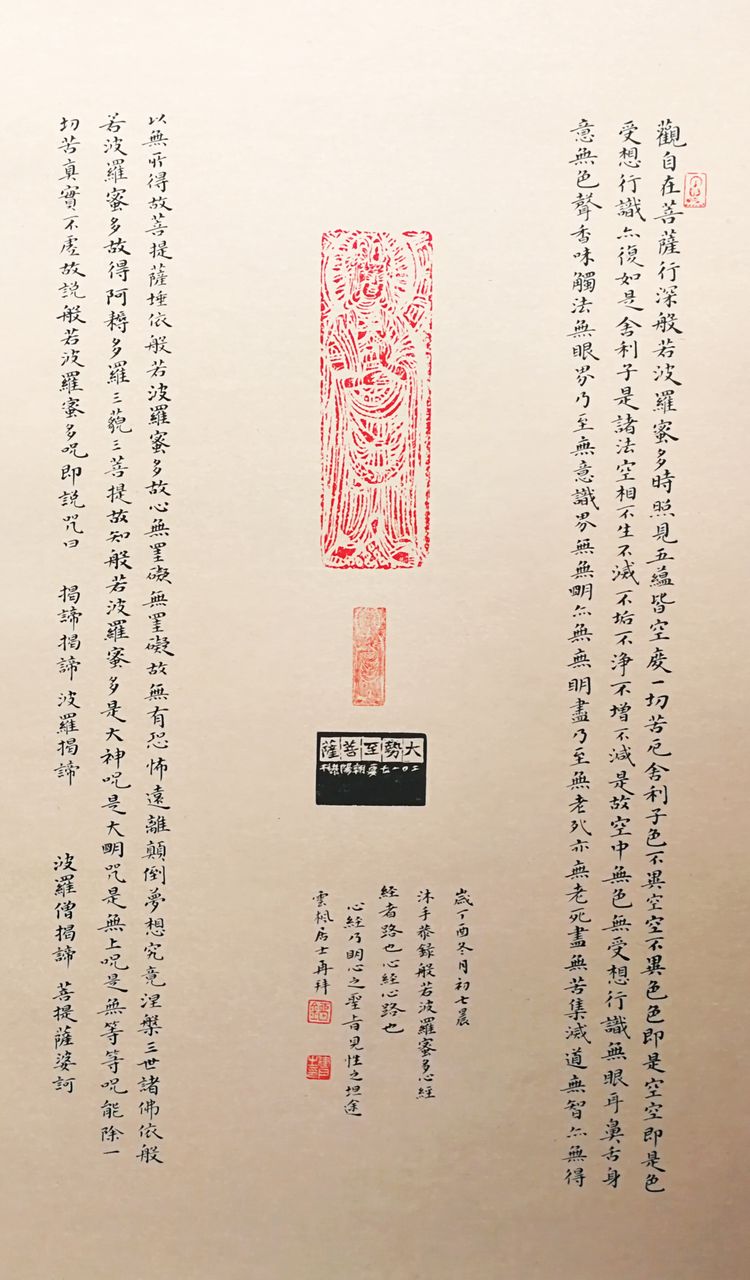 觀自在菩薩行深般若波羅蜜多時照見五蘊皆空度一切苦厄舍利子色不異空空不異色色即是空空即是色
受想行識亦復如是舍利子是諸法空相不生不滅不垢不淨不增不減是故空中無色無受想行識無眼耳鼻舌身
意無色聲香味觸法無眼界乃至無意識界無無明亦無無明盡乃至無老死亦無老死盡無苦集滅道無智亦無得
大勢至菩薩
二〇一七夏朝陽
歲丁酉冬月初七晨
沐手恭錄般若波羅蜜多心經
經者路也心經心路也
心經乃明心之聖旨見性之坦途
雲楓居士再拜
以無所得故菩提薩埵依般若波羅蜜多故心無罣礙無罣礙故無有恐怖遠離顛倒夢想究竟涅槃三世諸佛依般
若波羅蜜多故得阿耨多羅三藐三菩提故知般若波羅蜜多是大神咒是大明咒是無上咒是無等等咒能除一
切苦真實不虛故說般若波羅蜜多咒即說咒曰 揭諦揭諦 波羅揭諦 波羅僧揭諦 菩提薩婆訶